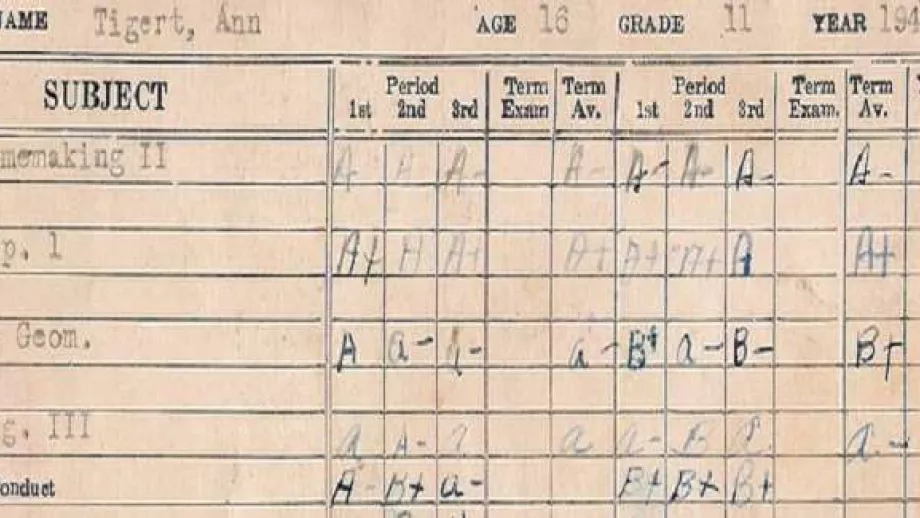 NAME Tigert, Ann AGE 16 GRADE 11 YEAR 194
SUBJECT Period Term Term Period Term Term
1st 2nd 3rd Exam Av. 1st 2nd 3rd Exam. Av.
memaking II A A A- A- A- A- A- A-
p. 1 A+ A A+ A+ A+ A+ A A+
Geom. A a- a- a- B+ a- B- B+
g. III a A- a a- B a-
onduct A- B+ a- B+ B+ B+